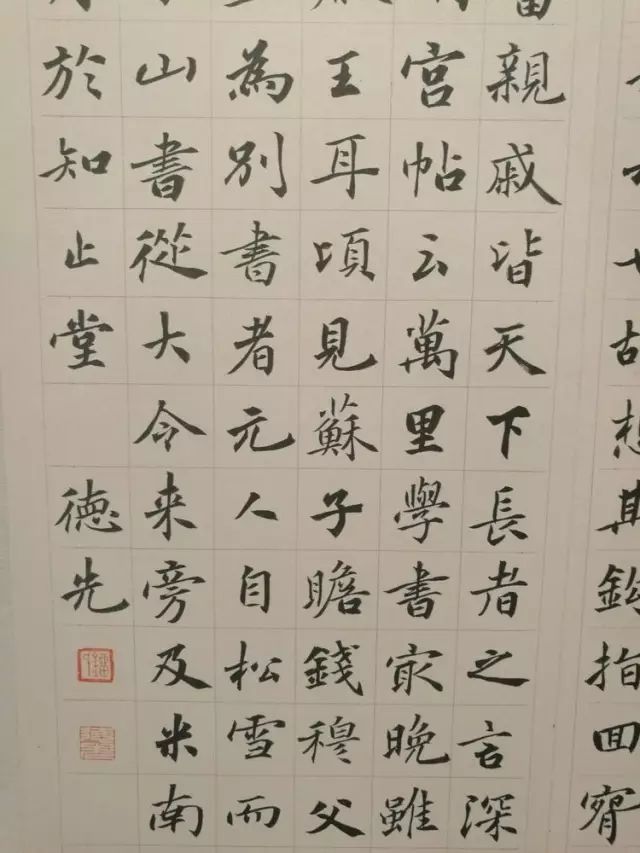 古想其鈎指回
親戚皆天下長者之言深
宮帖云萬里學書冣晚雖
王耳頃見蘇子瞻錢穆父
為別書者元人自松雪而
山書從大令来旁及米南
於知止堂 徳先